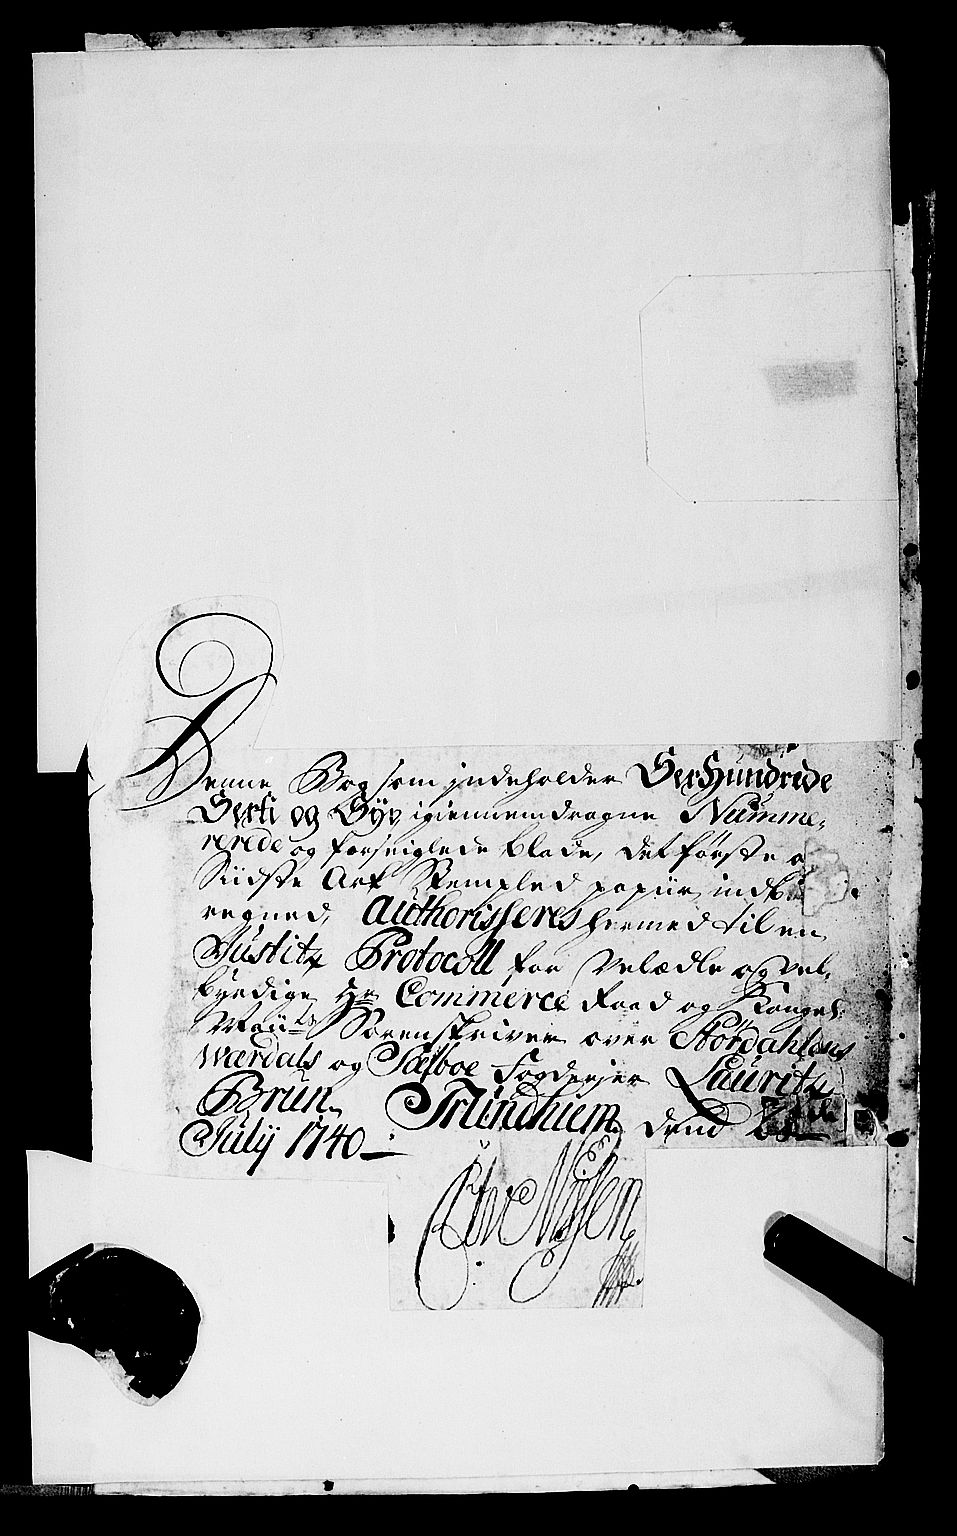 Denne Bog som indeholder SexHundrede
Sexti og Syv igiennemdragne Numme-
rerede og forseiglede blade, det første o
Siidste Ark Stempled papiir, indb
regned, Authorisseres hermed til en
Justitz Protocoll for Velædle og Vel-
byrdige Hr Commerce Raad og Kongel:
Mayts Sorenskriver over Størdahlens
Værdals og Sælboe Fogderjer Lauritz
Brun. Trundhiem dend
July 1740
Nissen